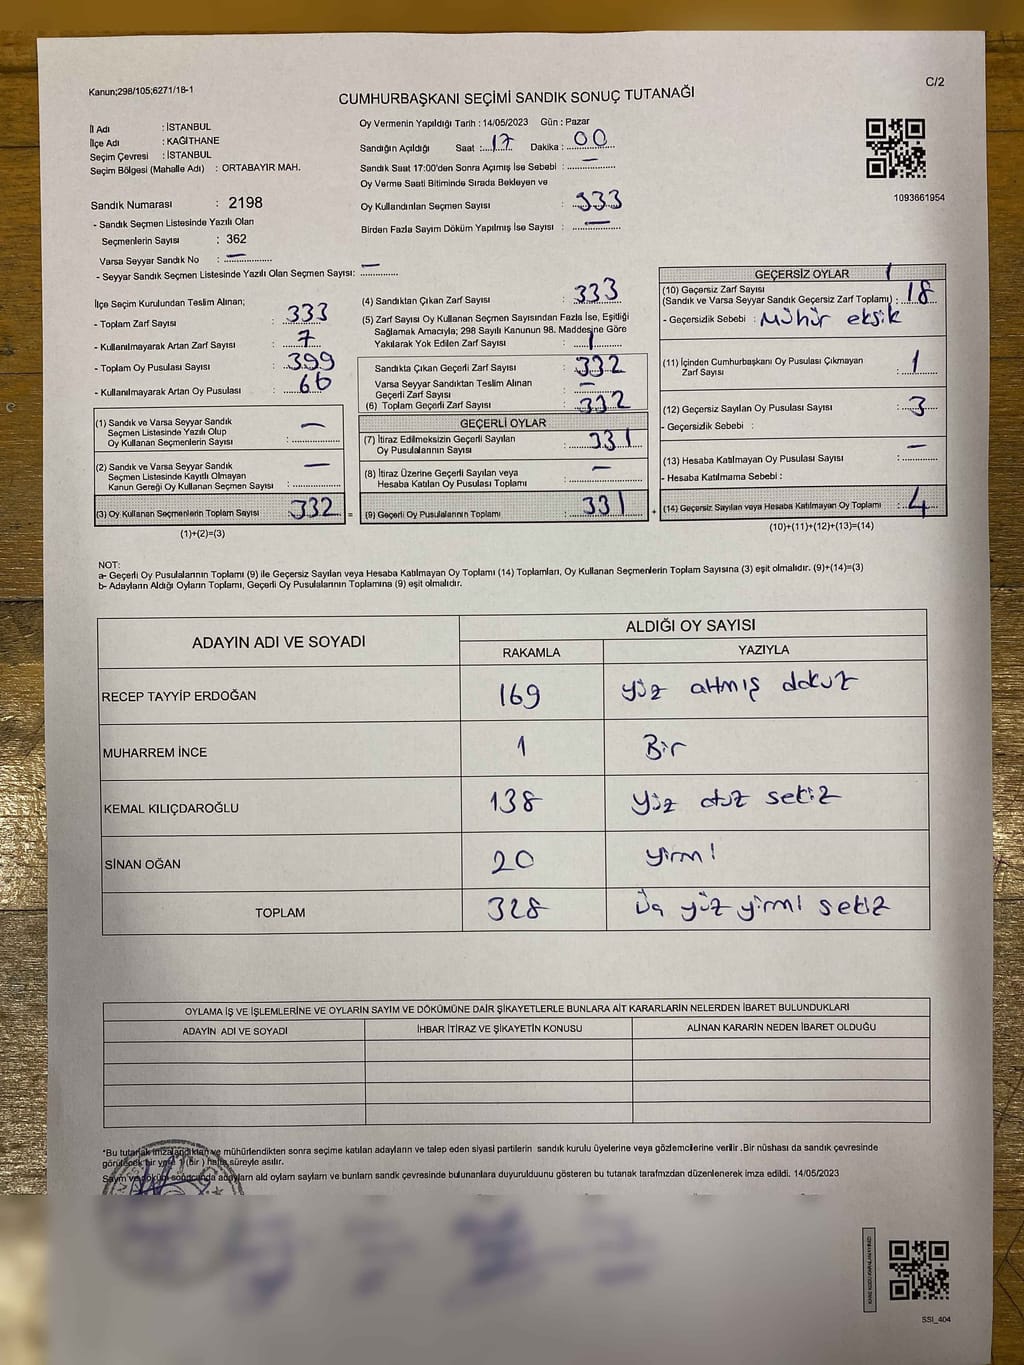 Kanun;298/105;6271/18-1
C/2
CUMHURBAŞKANI SEÇİMİ SANDIK SONUÇ TUTANAĞI
İl Adı : İSTANBUL
İlçe Adı : KAĞITHANE
Seçim Çevresi : İSTANBUL
Seçim Bölgesi (Mahalle Adı) : ORTABAYIR MAH.
Sandık Numarası : 2198
- Sandık Seçmen Listesinde Yazılı Olan
Seçmenlerin Sayısı : 362
Varsa Seyyar Sandık No : —
- Seyyar Sandık Seçmen Listesinde Yazılı Olan Seçmen Sayısı: —
Oy Vermenin Yapıldığı Tarih : 14/05/2023 Gün : Pazar
Sandığın Açıldığı Saat : 17 Dakika : 00
Sandık Saat 17:00'den Sonra Açımış İse Sebebi : —
Oy Verme Saati Bitiminde Sırada Bekleyen ve
Oy Kullandırılan Seçmen Sayısı : 333
Birden Fazla Sayım Döküm Yapılmış İse Sayısı : —
1093661954
İlçe Seçim Kurulundan Teslim Alınan;
- Toplam Zarf Sayısı : 333
- Kullanılmayarak Artan Zarf Sayısı : 7
- Toplam Oy Pusulası Sayısı : 399
- Kullanılmayarak Artan Oy Pusulası : 66
(1) Sandık ve Varsa Seyyar Sandık
Seçmen Listesinde Yazılı Olup
Oy Kullanan Seçmenlerin Sayısı : —
(2) Sandık ve Varsa Seyyar Sandık
Seçmen Listesinde Kayıtlı Olmayan
Kanun Gereği Oy Kullanan Seçmen Sayısı : —
(3) Oy Kullanan Seçmenlerin Toplam Sayısı : 332 =
(1)+(2)=(3)
(4) Sandıktan Çıkan Zarf Sayısı : 333
(5) Zarf Sayısı Oy Kullanan Seçmen Sayısından Fazla İse, Eşitliği
Sağlamak Amacıyla; 298 Sayılı Kanunun 98. Maddesine Göre
Yakılarak Yok Edilen Zarf Sayısı : 1
Sandıkta Çıkan Geçerli Zarf Sayısı : 332
Varsa Seyyar Sandıktan Teslim Alınan
Geçerli Zarf Sayısı : —
(6) Toplam Geçerli Zarf Sayısı : 332
GEÇERLİ OYLAR
(7) İtiraz Edilmeksizin Geçerli Sayılan
Oy Pusulalarının Sayısı : 331
(8) İtiraz Üzerine Geçerli Sayılan veya
Hesaba Katılan Oy Pusulası Toplamı : —
(9) Geçerli Oy Pusulalarının Toplamı : 331 +
GEÇERSİZ OYLAR
(10) Geçersiz Zarf Sayısı
(Sandık ve Varsa Seyyar Sandık Geçersiz Zarf Toplamı) : 18
- Geçersizlik Sebebi : Mühür eksik
(11) İçinden Cumhurbaşkanı Oy Pusulası Çıkmayan
Zarf Sayısı : 1
(12) Geçersiz Sayılan Oy Pusulası Sayısı : 3
- Geçersizlik Sebebi :
(13) Hesaba Katılmayan Oy Pusulası Sayısı : —
- Hesaba Katılmama Sebebi :
(14) Geçersiz Sayılan veya Hesaba Katılmayan Oy Toplamı : 4
(10)+(11)+(12)+(13)=(14)
NOT:
a- Geçerli Oy Pusulalarının Toplamı (9) ile Geçersiz Sayılan veya Hesaba Katılmayan Oy Toplamı (14) Toplamları, Oy Kullanan Seçmenlerin Toplam Sayısına (3) eşit olmalıdır. (9)+(14)=(3)
b- Adayların Aldığı Oyların Toplamı, Geçerli Oy Pusulalarının Toplamına (9) eşit olmalıdır.
ADAYIN ADI VE SOYADI ALDIĞI OY SAYISI
RAKAMLA YAZIYLA
RECEP TAYYİP ERDOĞAN 169 yüz altmış dokuz
MUHARREM İNCE 1 Bir
KEMAL KILIÇDAROĞLU 138 yüz otuz sekiz
SİNAN OĞAN 20 yirmi
TOPLAM 328 Üç yüz yirmi sekiz
OYLAMA İŞ VE İŞLEMLERİNE VE OYLARIN SAYIM VE DÖKÜMÜNE DAİR ŞİKAYETLERLE BUNLARA AİT KARARLARIN NELERDEN İBARET BULUNDUKLARI
ADAYIN ADI VE SOYADI İHBAR İTİRAZ VE ŞİKAYETİN KONUSU ALINAN KARARIN NEDEN İBARET OLDUĞU
*Bu tutanak imzalandıktan ve mühürlendikten sonra seçime katılan adayların ve talep eden siyasi partilerin sandık kurulu üyelerine veya gözlemcilerine verilir .Bir nüshası da sandık çevresinde
görülecek bir yere 1 (bir ) hafta süreyle asılır.
adayların ald oyların saylam ve bunların sandk çevresinde bulunanlara duyurulduunu gösteren bu tutanak tarafmzdan düzenlenerek imza edildi. 14/05/2023
SSI_404